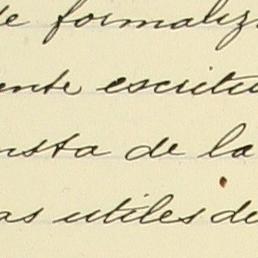 de formaliz
ente escritu
nsta de la
as utiles de